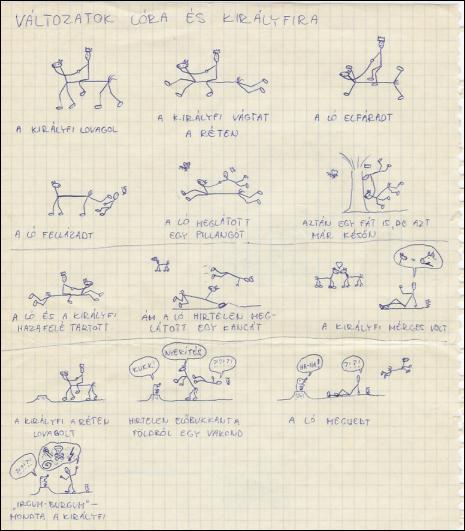 VÁLTOZATOK LÓRA ÉS KIRÁLYFIRA
A KIRÁLYFI LOVAGOL
A KIRÁLYFI VÁGTAT
A RÉTEN
A LÓ ELFÁRADT
A LÓ FELLÁZADT
A LÓ MEGLÁTOTT
EGY PILLANGÓT
AZTÁN EGY FÁT IS, DE AZT
MÁR KÉSŐN
A LÓ ÉS A KIRÁLYFI
HAZAFELÉ TARTOTT
ÁM A LÓ HIRTELEN MEG-
LÁTOTT EGY KANCÁT
A KIRÁLYFI MÉRGES VOLT
KUKK!
NYERÍTÉS
?!?!?!
HA-HA!
?!?!
A KIRÁLYFI A RÉTEN
LOVAGOLT
HIRTELEN ELŐBUKKANT A
FÖLDRŐL EGY VAKOND
A LÓ MEGIJEDT
?!?!?!
„IRGUM-BURGUM" –
MONDTA A KIRÁLYFI